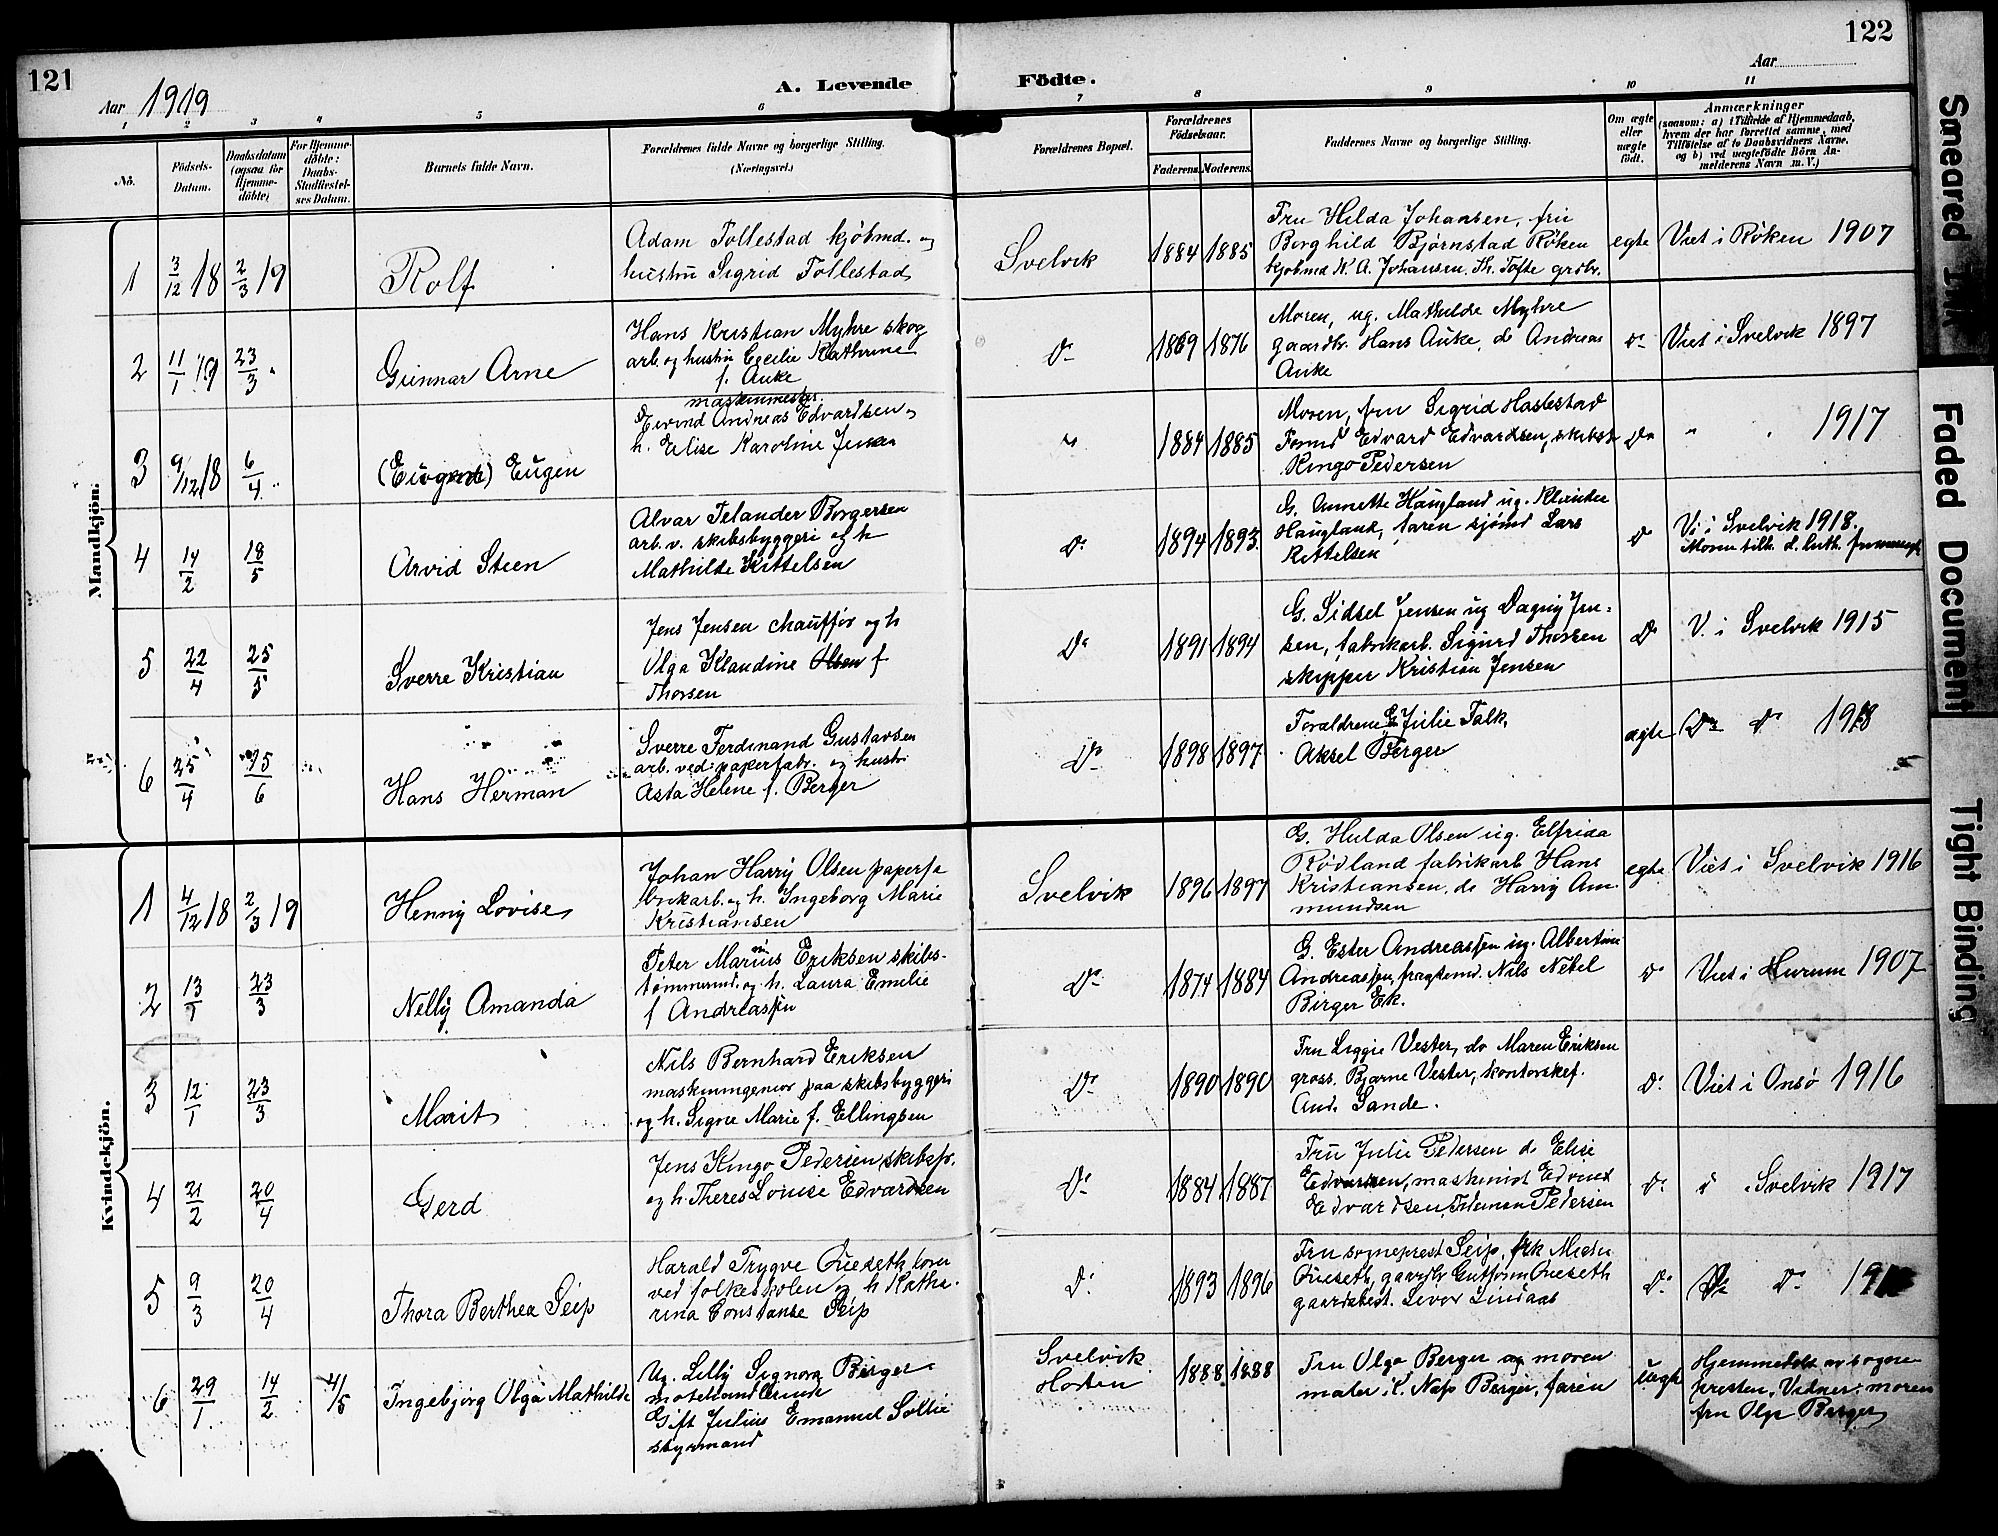 121
Aar 1919
A. Levende Födte.
122
Aar
1 2 3 4 5 6 7 8 9 10 11
No.
Födsels-
Datum.
Daabsdatum
(ogsaa for
Hjemme-
döbte)
For Hjemme-
döbte:
Daabs-
Stadfæstel-
ses Datum.
Barnets fulde Navn.
Forældrenes fulde Navne og borgerlige Stilling.
(Næringsvei.)
Forældrenes Bopæl.
Forældrenes
Födselsaar.
Faderens Moderens.
Faddernes Navne og borgerlige Stilling.
Om ægte
eller
uægte
födt.
Anmærkninger
(saasom: a) i Tilfælde af Hjemmedaab,
hvem der har forrettet samme, med
Tilföielse af to Daabsvidners Navne,
og b) ved uægtefödte Börn An-
melderens Navn m. V.)
Mandkjön.
1
3/12 18
2/3 19
Rolf
Adam Tollestad kjøbmd. og
hustru Sigrid Tollestad
Svelvik
1884
1885
Fru Hilda Johansen, fru
Borghild Bjørnstad Røken
kjøbmd K. A. Johansen. Th. Tofte grdbr.
egte
Viet i Røken 1907
2
11/1 19
23/3
Gunnar Arne
Hans Kristian Myhre skog
arb. og hustru Cecilie Kathrine
f. Auke
Do
1869
1876
Moren, ug. Mathilde Myhre
gaardbr. Hans Auke, do Andreas
Auke
Do
Viet i Svelvik 1897
3
9/12 18
6/4
Eugen
maskinmester
Eivind Andreas Edvardsen og
h. Elise Karoline Jensen
"
1884
1885
Moren, fru Sigrid Hastestad
Formd Edvard Edvardsen, skibst
Kingo Pedersen
Do
" " 1917
4
14/2
18/5
Arvid Steen
Alvar Telander Borgersen
arb. v. skibsbyggeri og h
Mathilde Kittelsen
Do
1894
1893.
G. Annette Haugland ug. Klander
Haugland, faren sjømd Lars
Kittelsen
Do
Vi i Svelvik 1918.
Moren tilh. d. luth. frimenigh
5
22/4
25/5
Sverre Kristian
Jens Jensen chauffør og h
Olga Klaudine Olsen f
Thorsen
Do
1891
1894
G. Sidsel Jensen ug Dagny Jen-
sen, fabrikarb. Sigurd Thorsen
skipper Kristian Jensen
Do
V. i Svelvik 1915
6
25/4
15/6
Hans Herman
Sverre Ferdinand Gustavsen
arb. ved papirfabr. og hustr
Asta Helene f. Berger
Do
1898
1897
Forældrene G Julie Falk,
Aksel Berger
ægte
Do Do 1918
Kvindekjön.
1
4/12 18
2/3 19
Henny Lovise
Johan Harry Olsen paperfa
brikarb. og h. Ingeborg Marie
Kristiansen
Svelvik
1896
1897
G. Hulda Olsen ug. Elfrida
Rødland fabrikarb Hans
Kristiansen, do Harry Am-
mundsen
egte
Viet i Svelvik 1916
2
13/1
23/3
Nelly Amanda
Peter Marius Eriksen skibs-
tømmermd. og h. Laura Emelie
f Andreassen
Do
1874
1884
G. Ester Andreassen ug. Albertine
Andreassen fragtemd. Nils Nebel
Birger Ek.
Do
Viet i Hurum 1907
3
12/1
23/3
Marit
Nils Bernhard Eriksen
maskiningeniør paa skibsbyggeri
og h. Signe Marie f. Ellingsen
Do
1890
1890
Fru Liggie Vester, do Maren Eriksen
gross. Bjarne Vester, kontorchef
And. Sande.
Do
Viet i Onsø 1916
4
21/2
20/4
Gerd
Jens Kingo Pedersen skibsfr.
og h. Theres Louise Edvardsen
Do
1884
1887
Fru Julie Pedersen do Elise
Edvardsen, maskinist Edvind
Edvardsen, Pedersen
Do
i Svelvik 1917
5
9/3
20/4
Thora Berthea Seip
Harald Trygve Oueseth lærer
ved folkeskolen og h Katha-
rina Constanse Seip
Do
1893
1896
Fru sogneprest Seip, frk
Oueseth, gaardbr Guttorm Oueseth
gaardsbest. Sever Lindaas
Do
Do Do
6
29/1
14/2
4/5
Ingebjørg Olga Mathilde
Ug. Lilly Signora Birger
motehandlerinde
Gift Julius Emanuel Soltie
styrmand
Svelvik
Horten
1888
1888
Fru Olga Berger og moren
maler C. Næss Berger, faren
uegte
Hjemmedøbt av sogne-
presten. Vidner: moren
fru Olga Berger
Smeared Ink
Faded Document
Tight Binding